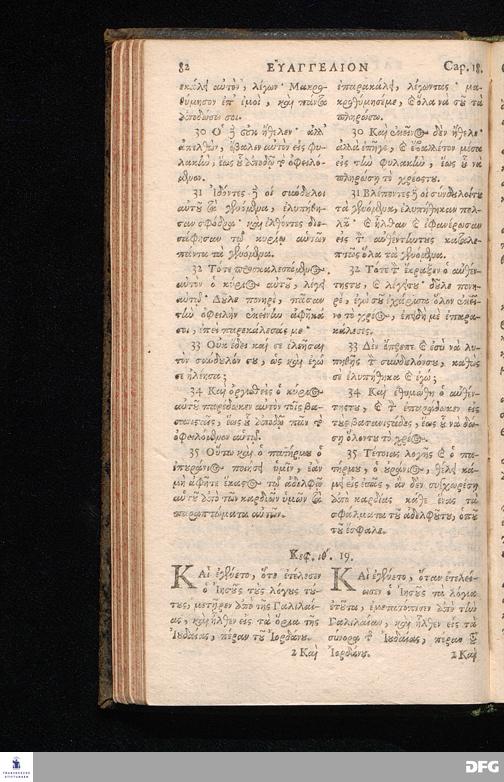 82 ΕΥΑΓΓΕΛΙΟΝ Cap. 18.
εκάλει αὐτὸν, λέγων· Μακρο-
θύμησον ἐπ' ἐμοὶ, καὶ πάντα
ἀποδώσω σοι.
30 Ὁ δὲ οὐκ ἤθελεν· ἀλλ'
ἀπελθὼν, ἔβαλεν αὐτὸν εἰς φυ-
λακὴν, ἕως οὗ ἀποδῷ τὸ ὀφειλό-
μενον.
31 Ἰδόντες δὲ οἱ σύνδουλοι
αὐτοῦ τὰ γενόμενα, ἐλυπήθη-
σαν σφόδρα· καὶ ἐλθόντες διε-
σάφησαν τῷ κυρίῳ αὑτῶν
πάντα τὰ γενόμενα.
32 Τότε προσκαλεσάμενος
αὐτὸν ὁ κύριος αὐτοῦ, λέγει
αὐτῷ· Δοῦλε πονηρὲ, πᾶσαν
τὴν ὀφειλὴν ἐκείνην ἀφῆκά
σοι, ἐπεὶ παρεκάλεσάς με·
33 Οὐκ ἔδει καὶ σὲ ἐλεῆσαι
τὸν σύνδουλόν σου, ὡς καὶ ἐγώ
σε ἠλέησα;
34 Καὶ ὀργισθεὶς ὁ κύριος
αὐτοῦ παρέδωκεν αὐτὸν τοῖς βα-
σανισταῖς, ἕως οὗ ἀποδῷ πᾶν τὸ
ὀφειλόμενον αὐτῷ.
35 Οὕτω καὶ ὁ πατήρ μου ὁ
ἐπουράνιος ποιήσει ὑμῖν, ἐὰν
μὴ ἀφῆτε ἕκαστος τῷ ἀδελφῷ
αὑτοῦ ἀπὸ τῶν καρδιῶν ὑμῶν τὰ
παραπτώματα αὐτῶν.
ἐπαρακάλει, λέγωντας· μα-
κροθύμησέμε, καὶ ὅλα νὰ σοῦ τὰ
πληρώσω.
30 Καὶ ἐκεῖνος δὲν ἤθελε·
ἀλλὰ ἐπῆγε, καὶ ἔβαλέτον μέσα
εἰς τὴν φυλακὴν, ἕως οὗ νὰ
πληρώσῃ τὸ χρέοςτου.
31 Βλέποντες δὲ οἱ σύνδουλοίτου
τὰ γενόμενα, ἐλυπήθηκαν πολ-
λὰ· καὶ ἦλθαν καὶ ἐφανέρωσαν
εἰς τὸν αὐθέντωντους καταλε-
πτῶς ὅλα τὰ γενόμενα.
32 Τότε τὸν ἔκραξεν ὁ αὐθέν-
τηςτου, καὶ λέγειτου· δοῦλε πονη-
ρὲ, ἐγὼ σοῦ ἐχάρισα ὅλον ἐκεῖ-
νο τὸ χρέος, ἐπειδὴ μὲ ἐπαρα-
κάλεσες.
33 Δὲν ἔπρεπε καὶ ἐσὺ νὰ λυ-
πηθῇς τὸν σύνδουλόνσου, καθὼς
σὲ ἐλυπήθηκα καὶ ἐγώ;
34 Καὶ ἐθυμώθη ὁ αὐθέν-
τηςτου, καὶ τὸν ἐπαράδωκεν εἰς
τοὺς βασανιστάδες, ἕως οὗ νὰ δώ-
σῃ ὅλοντου τὸ χρέος.
35 Τέτοιας λογῆς καὶ ὁ πα-
τήρμου, ὁ οὐράνιος, θέλει κά-
μῃ εἰς ἐσᾶς, ἂν δὲν συγχωρέσῃ
ἀπὸ καρδίας κάθε ἕνας τὰ
σφάλματα τοῦ ἀδελφοῦτου, ὁποῦ
τοῦ ἔσφαλε.
Κεφ. ιθ΄. 19.
ΚΑὶ ἐγένετο, ὅτε ἐτέλεσεν
ὁ Ἰησοῦς τοὺς λόγους τού-
τους, μετῆρεν ἀπὸ τῆς Γαλιλαί-
ας, καὶ ἦλθεν εἰς τὰ ὅρια τῆς
Ἰουδαίας, πέραν τοῦ Ἰορδάνου.
2 Καὶ
ΚΑὶ ἐγένετο, ὅταν ἐτελεί-
ωσεν ὁ Ἰησοῦς τὰ λόγια
ἐτοῦτα, ἐμετατόπισεν ἀπὸ τὴν
Γαλιλαίαν, καὶ ἦλθεν εἰς τὰ
σύνορα τῆς Ἰουδαίας, πέραν τοῦ
Ἰορδάνου. 2 Καὶ
FRANCKESCHE STIFTUNGEN
DFG